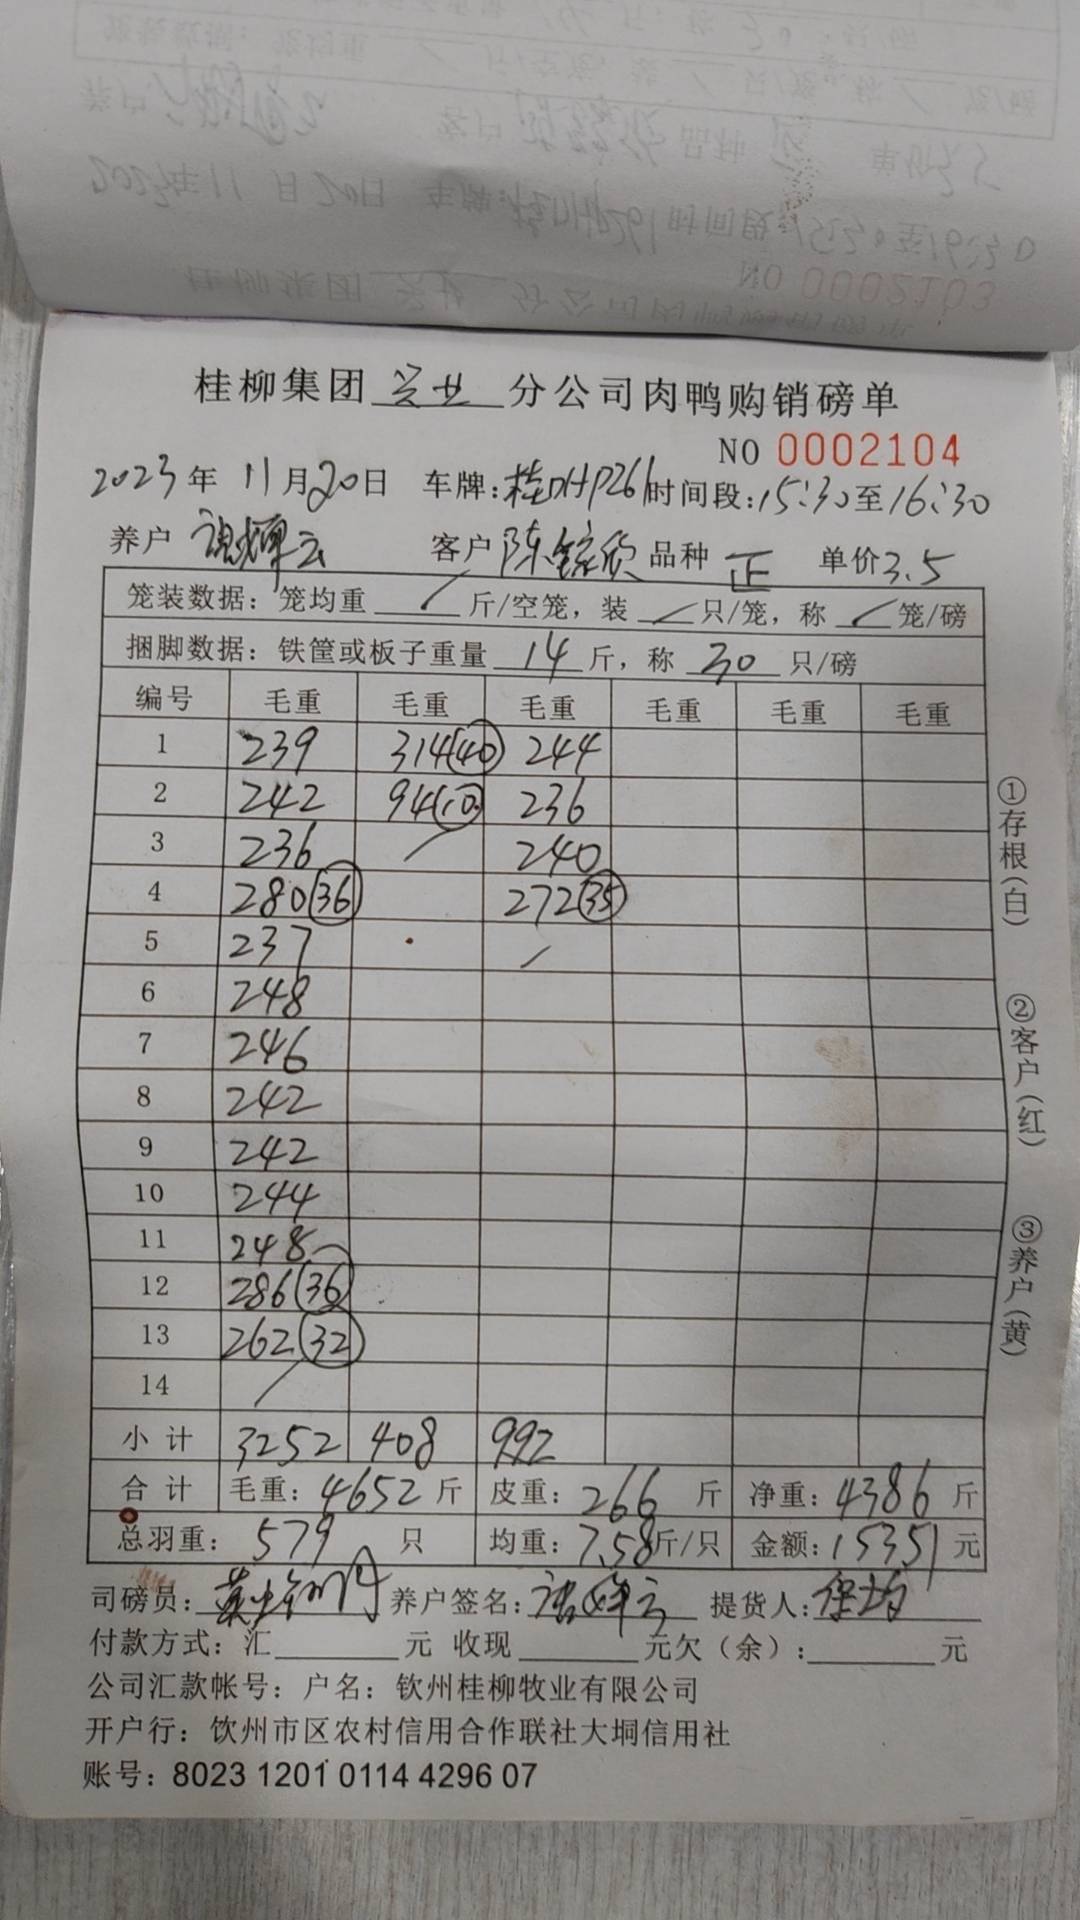 NO 0002103
桂柳集团 兴业 分公司肉鸭购销磅单
NO 0002104
2023年 11月20日 车牌:桂DHP261 时间段:15:30至16:30
养户 客户 陈 品种 正 单价3.5
笼装数据: 笼均重 / 斤/空笼, 装 / 只/笼, 称 / 笼/磅
捆脚数据: 铁筐或板子重量 14 斤, 称 30 只/磅
编号 毛重 毛重 毛重 毛重 毛重 毛重
1 239 314(40) 244
2 242 94(10) 236
3 236 / 240
4 280(36) 272(35)
5 237 /
6 248
7 246
8 242
9 242
10 244
11 248
12 286(36)
13 262(32)
14 /
小计 3252 408 992
合计 毛重: 4652 斤 皮重: 266 斤 净重: 4386 斤
总羽重: 579 只 均重: 7.58斤/只 金额: 15351 元
司磅员: 养户签名: 提货人:
付款方式: 汇 元 收现 元欠(余): 元
公司汇款帐号: 户名: 钦州桂柳牧业有限公司
开户行: 饮州市区农村信用合作联社大垌信用社
账号: 8023 1201 0114 4296 07
①存根(白)
②客户(红)
③养户(黄)